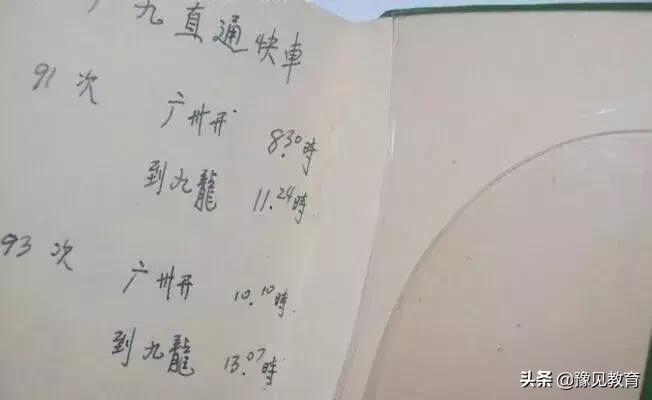 广九直通快車
91次 广州开 8.30時
到九龍 11.24時
93次 广州开 10.10時
到九龍 13.07時
头条 @豫见教育